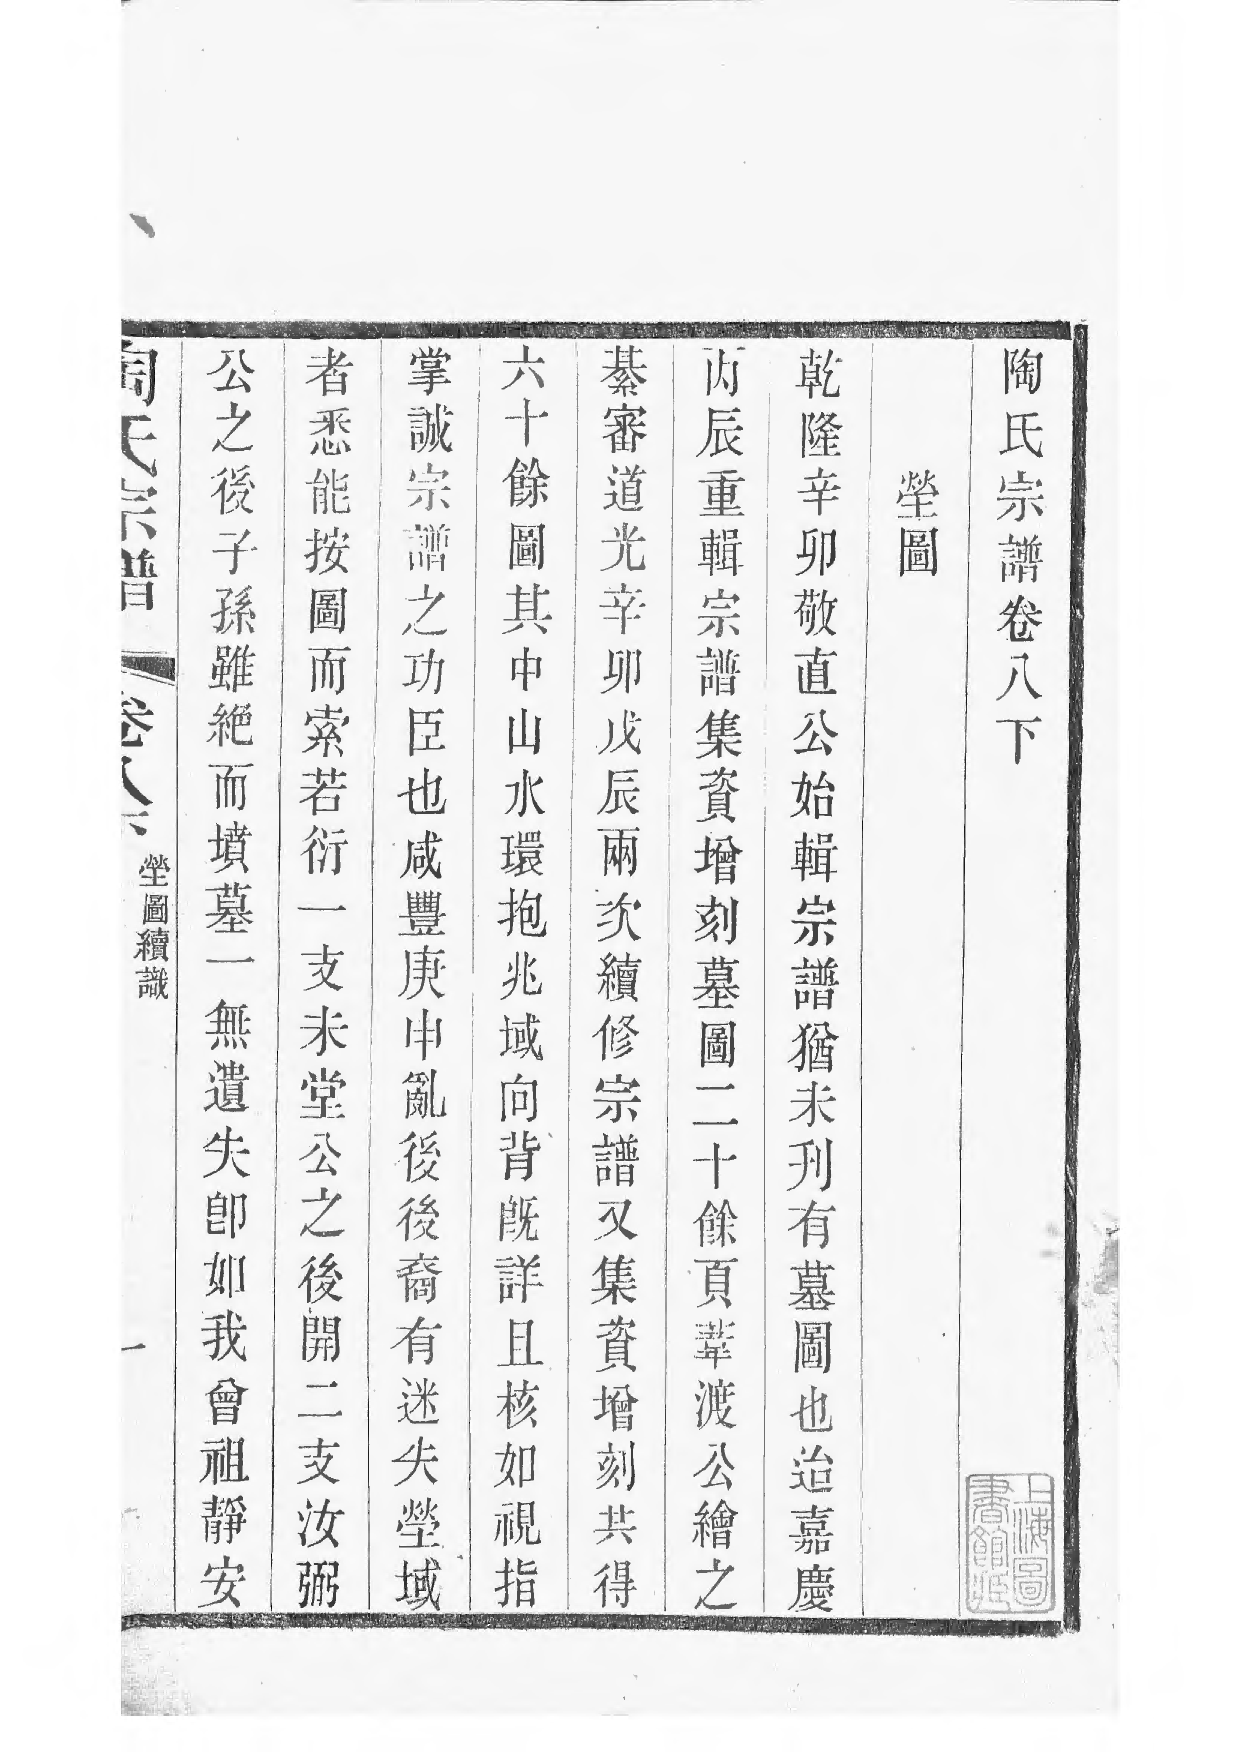 陶氏宗譜卷八下
塋圖
乾隆辛卯敬直公始輯宗譜猶未刊有墓圖也迨嘉慶
丙辰重輯宗譜集資增刻墓圖二十餘頁葦渡公繪之
綦審道光辛卯戊辰兩次續修宗譜又集資增刻共得
六十餘圖其中山水環抱兆域向背既詳且核如視指
掌誠宗譜之功臣也咸豐庚申亂後後裔有迷失塋域
者悉能按圖而索若衍一支未堂公之後開二支汝弼
公之後子孫雖絕而墳墓一無遺失卽如我曾祖靜安
陶氏宗譜 卷八下 塋圖續識 一
上海圖書館藏